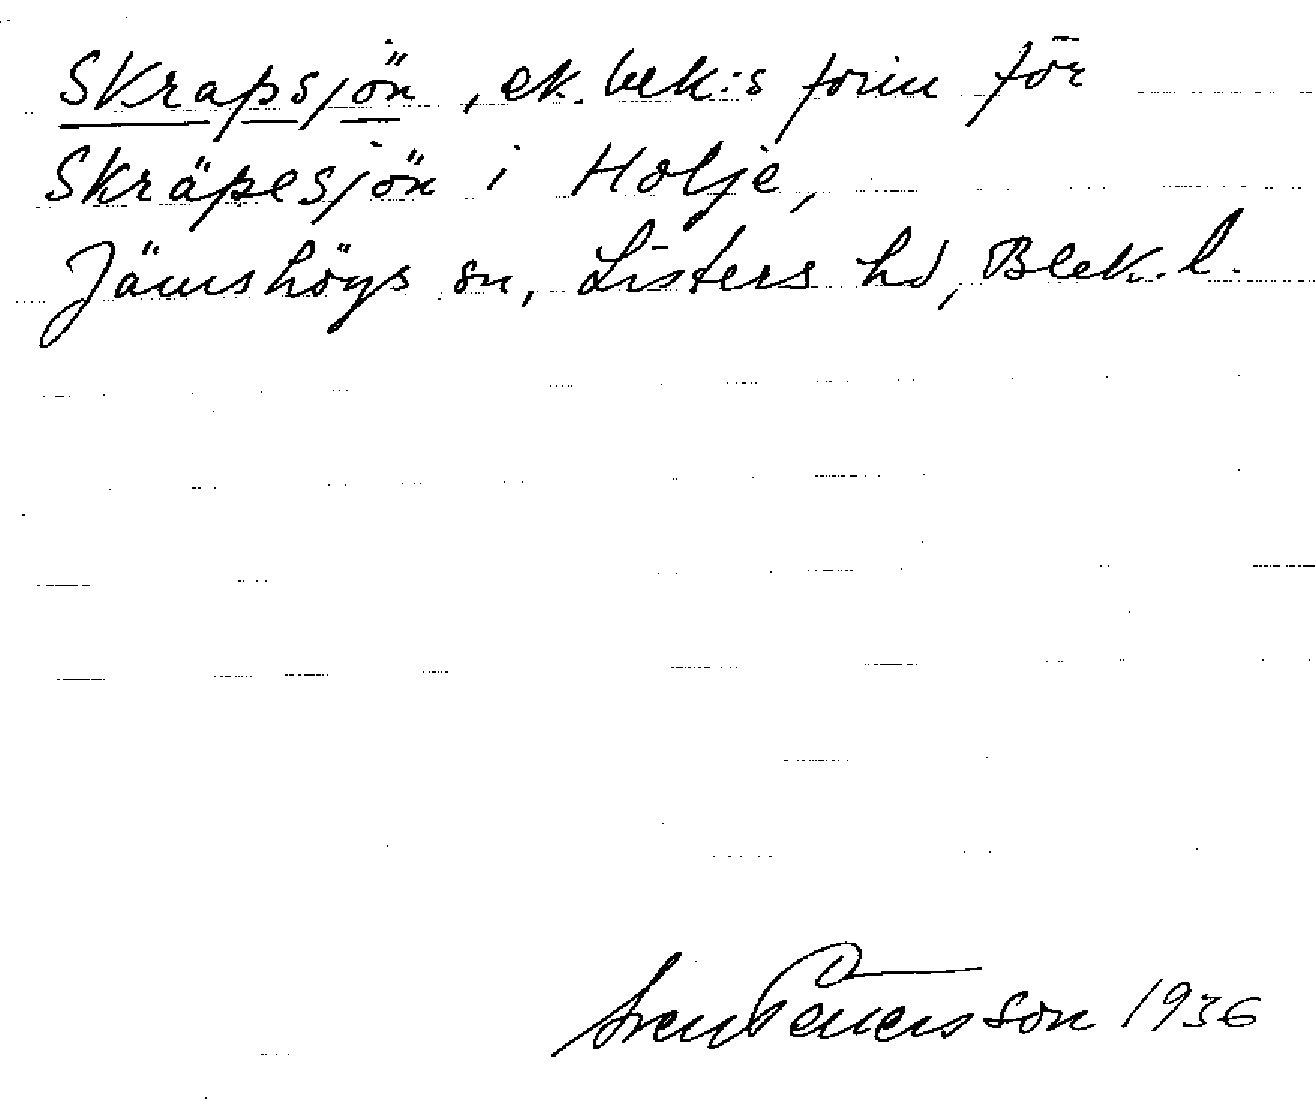 Skrapsjön, ek. bek:s form för
Skräpesjön i Holje,
Jämshögs sn, Listers hd, Blek. l.
Sven Benson 1936